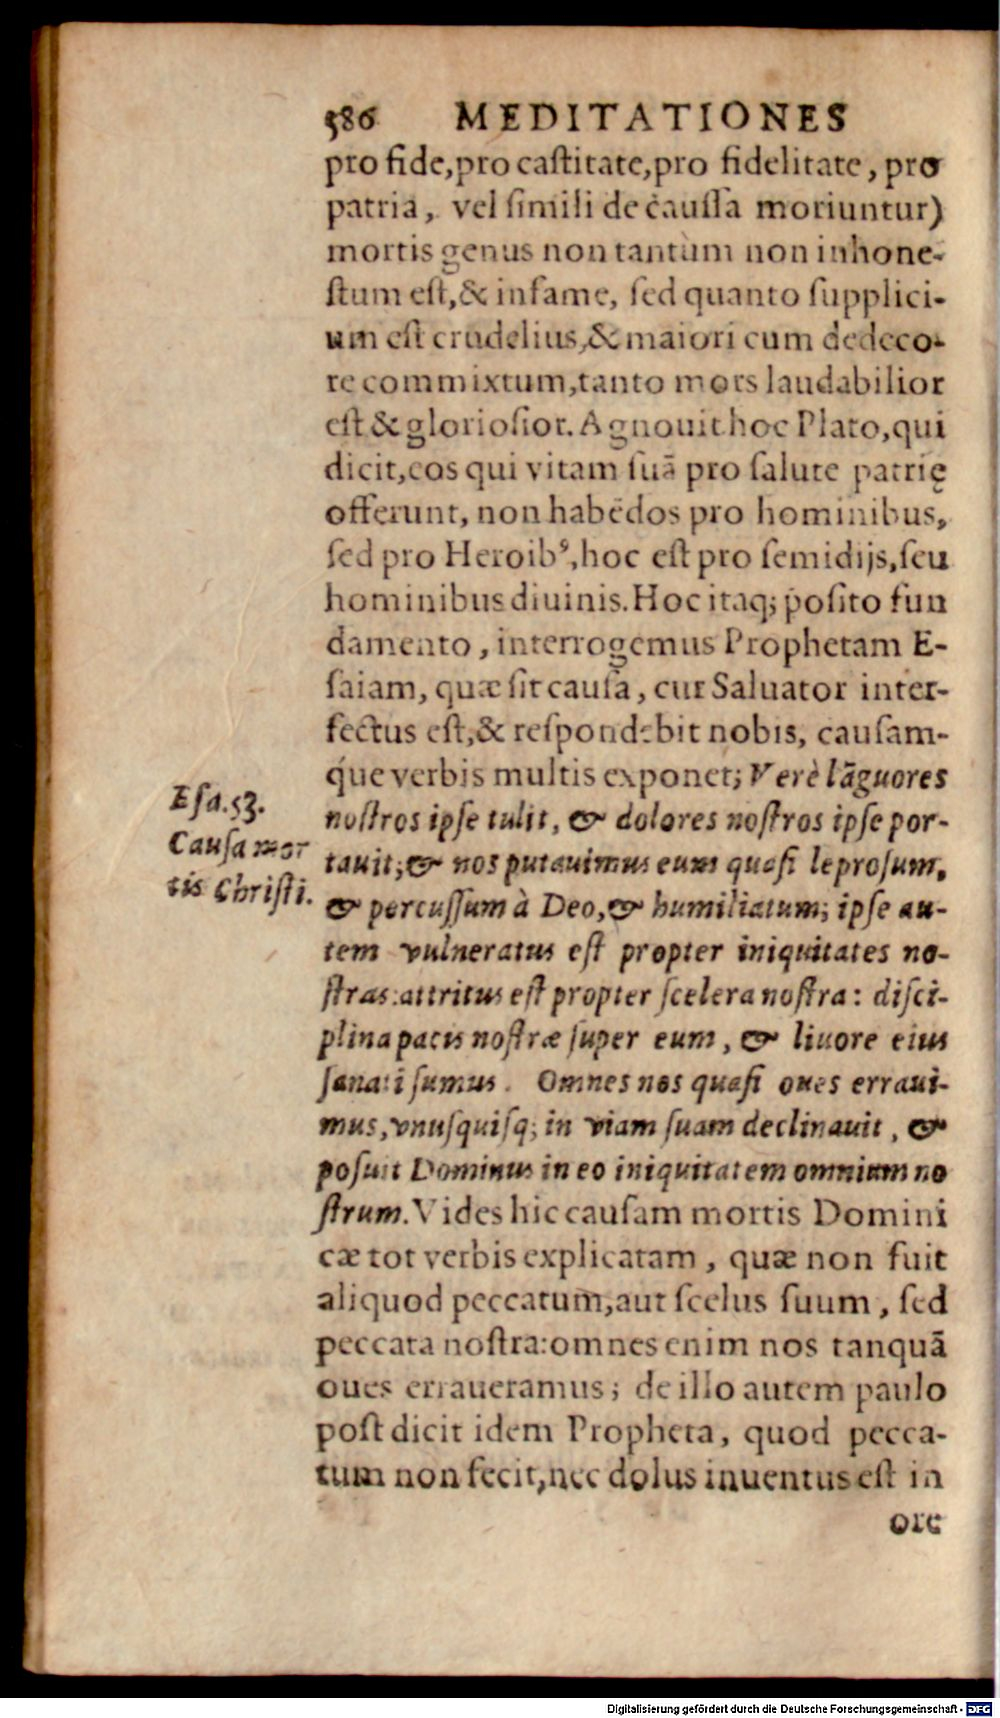 586 MEDITATIONES
pro fide, pro castitate, pro fidelitate, pro
patria, vel simili de caussa moriuntur)
mortis genus non tantùm non inhone-
stum est, & infame, sed quanto supplici-
um est crudelius, & maiori cum dedeco-
re commixtum, tanto mors laudabilior
est & gloriosior. Agnouit hoc Plato, qui
dicit, eos qui vitam suā pro salute patrię
offerunt, non habēdos pro hominibus,
sed pro Heroibꝰ, hoc est pro semidijs, seu
hominibus diuinis. Hoc itaq; posito fun
damento, interrogemus Prophetam E-
saiam, quæ sit causa, cur Saluator inter-
fectus est, & respondebit nobis, causam-
que verbis multis exponet; Verè lāguores
nostros ipse tulit, & dolores nostros ipse por-
tauit; & nos putauimus eum quasi leprosum,
& percussum à Deo, & humiliatum; ipse au-
tem vulneratus est propter iniquitates no-
stras: attritus est propter scelera nostra: disci-
plina pacis nostræ super eum, & liuore eius
sanati sumus. Omnes nos quasi oues erraui-
mus, vnusquisq; in viam suam declinauit, &
posuit Dominus in eo iniquitatem omnium no
strum. Vides hic causam mortis Domini
cæ tot verbis explicatam, quæ non fuit
aliquod peccatum, aut scelus suum, sed
peccata nostra: omnes enim nos tanquā
oues erraueramus; de illo autem paulo
post dicit idem Propheta, quod pecca-
tum non fecit, nec dolus inuentus est in
ore
Esa. 53.
Causa mor
tis Christi.
Digitalisierung gefördert durch die Deutsche Forschungsgemeinschaft - DFG